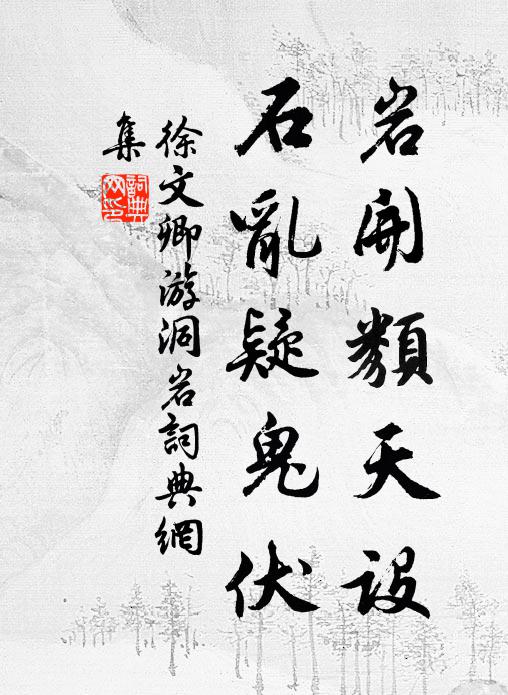 岩開類天設
石亂疑鬼伏
徐文卿游洞岩詞典網
集
詞典
网印